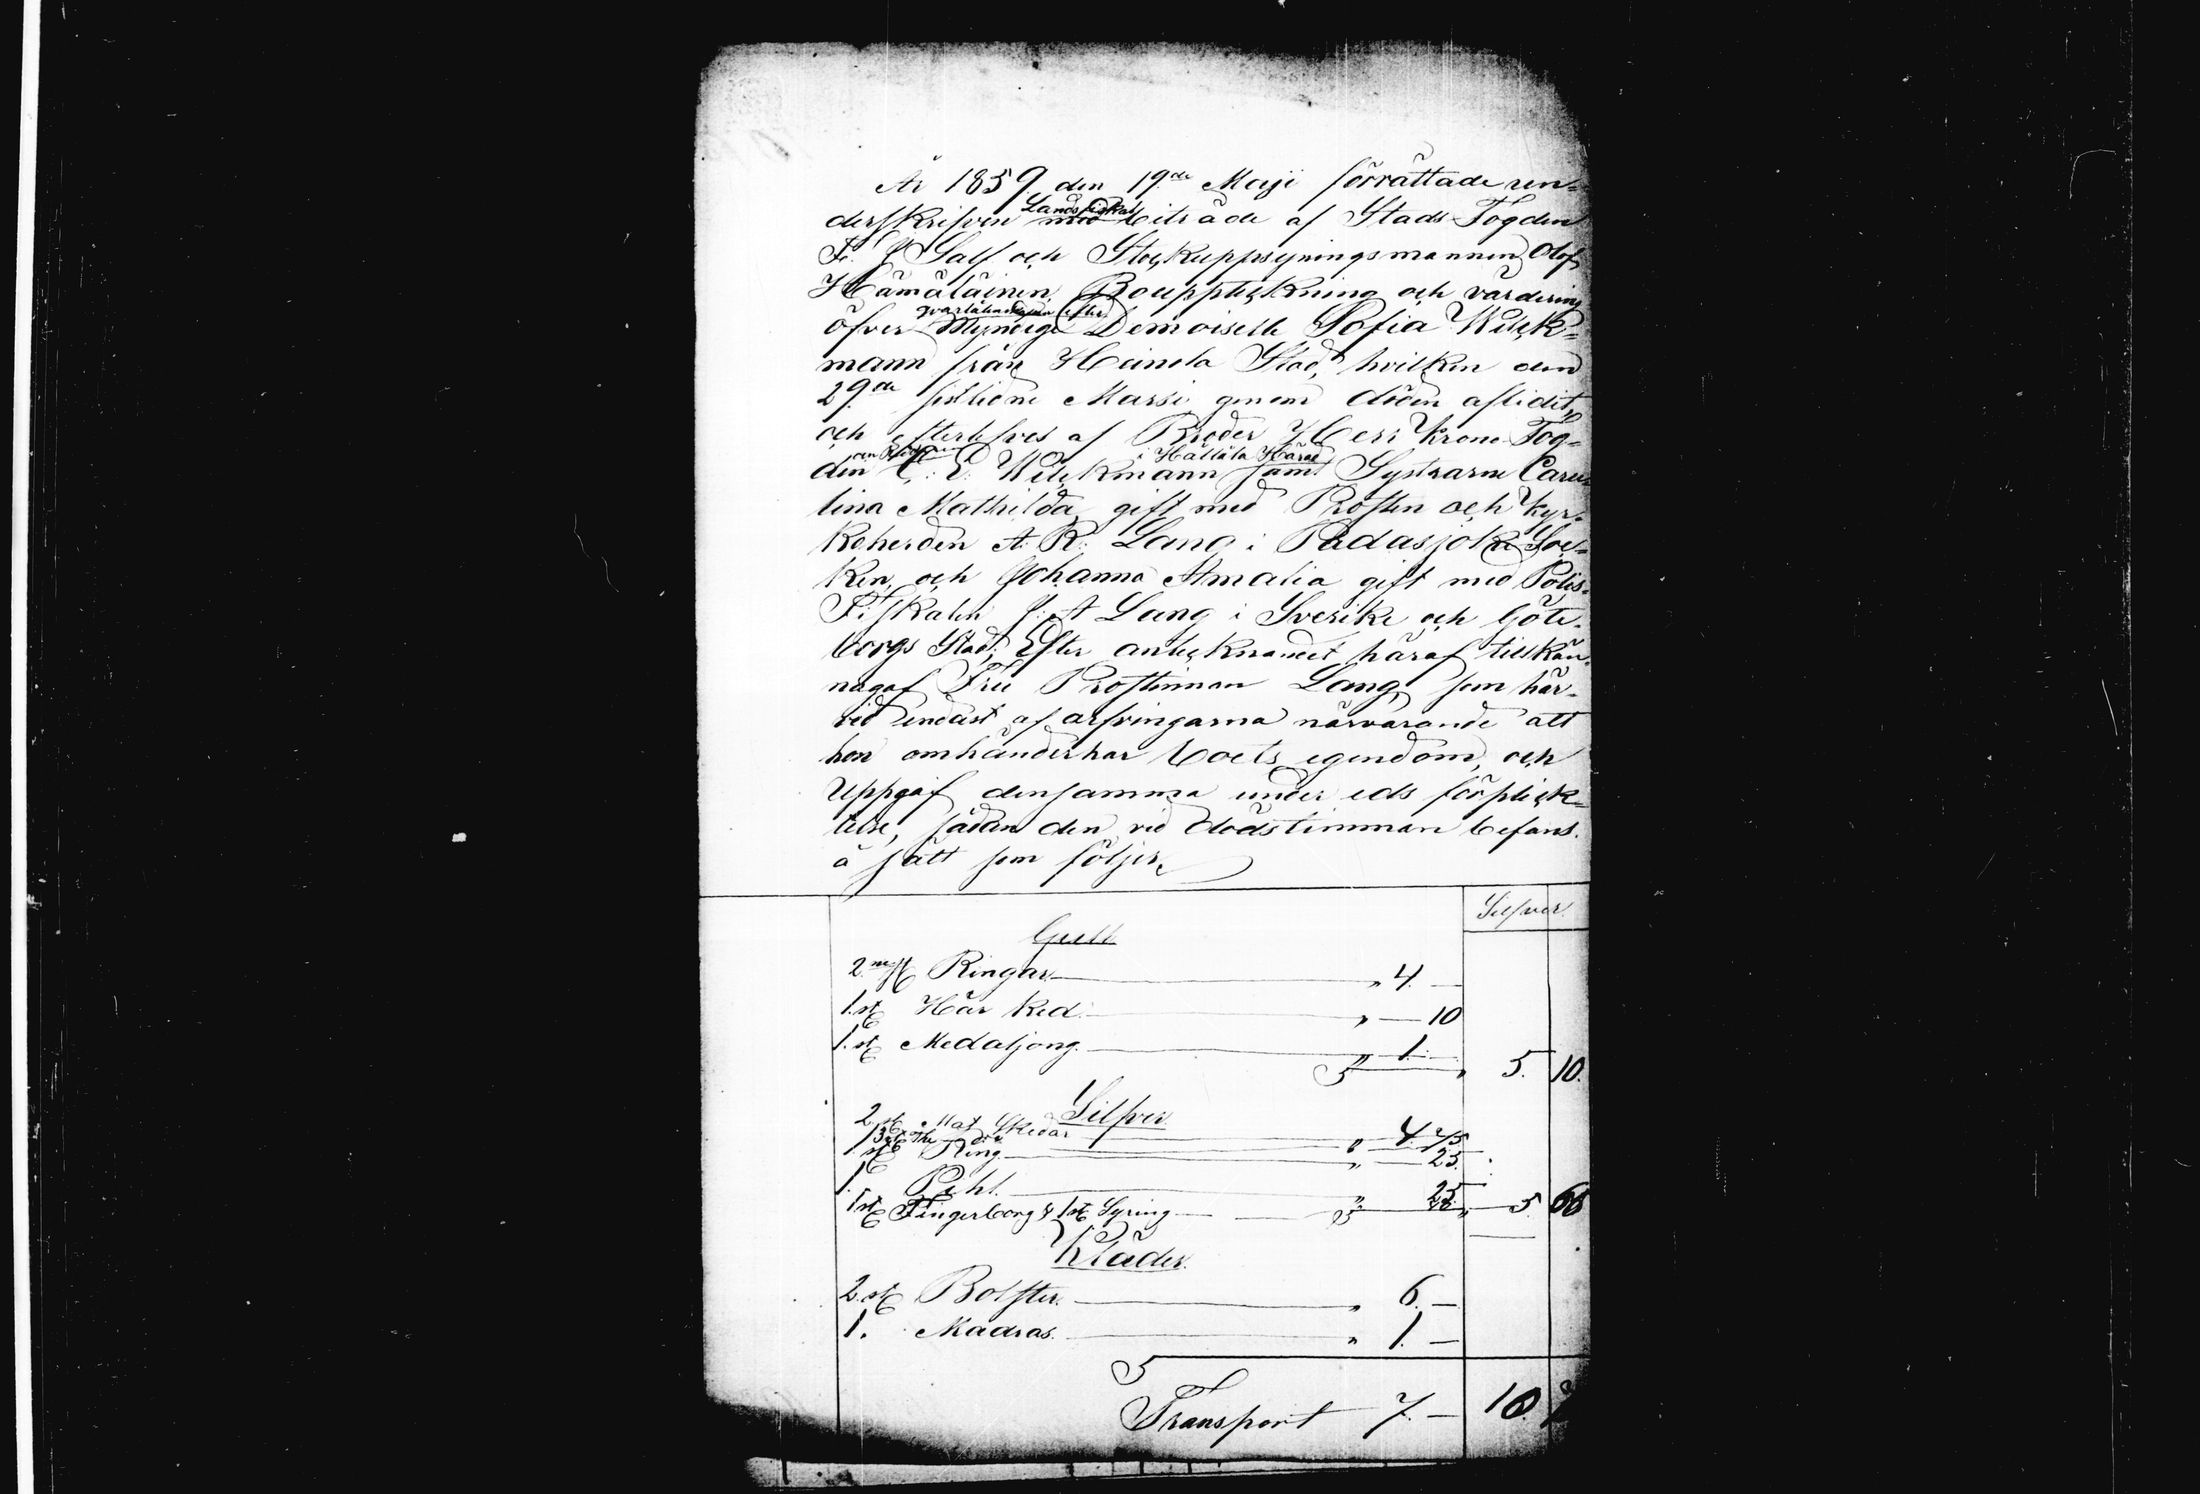 År 1859. den 19de Maji förrättade un-
derskrifven Landsfiskal
med biträde af Stads Fogden
F. J Galf och Stockuppsyningsmannen Olof
Hämäläinen, Bouppteckning och värdering
qvarlåtenskapen efter
öfver Myndige Demoiselle Sofia Wilck-
mann från Heinola Stad, hvilken den
29de sistledne Marsi genom döden aflidit,
och efterlefves af Broder Herr Krono Fog-
den och Riddaren i Hattula Härad
C. E. Wilckmann samt Systrarne Caro-
lina Mathilda, gift med Prosten och Kyr-
koherden A. R. Lang i Padasjoki Soc-
ken, och Johanna Amalia gift med Polis-
Fiskaln J. A Lang i Sverike och Göte-
borgs Stad; Efter antecknandet häraf tillkän-
nagaf Fru Prostinnan Lang, som här-
vid endast af arfvingarna närvarande att
hon omhänderhar boets egendom, och
uppgaf densamma under eds förplick-
telse, sådan den vid dödstimman befans.
å sätt som följer,
Silfver.
Guld
2ne st Ringar " 4. —
1. st Hår Ked. " — 10
1. st Medaljong. " 1. —
S " 5. 10.
Silfver.
2 st Mat Skedar
3 st The do " 4. 75
1 st Ring " — 25.
1. Pihl. " 25
1 st Fingerborg & 1 st Syring S " 5. 60
Kläder.
2. st Bolster. " 6. —
1. Madras. " 1. —
S
Transport 7. — 10.